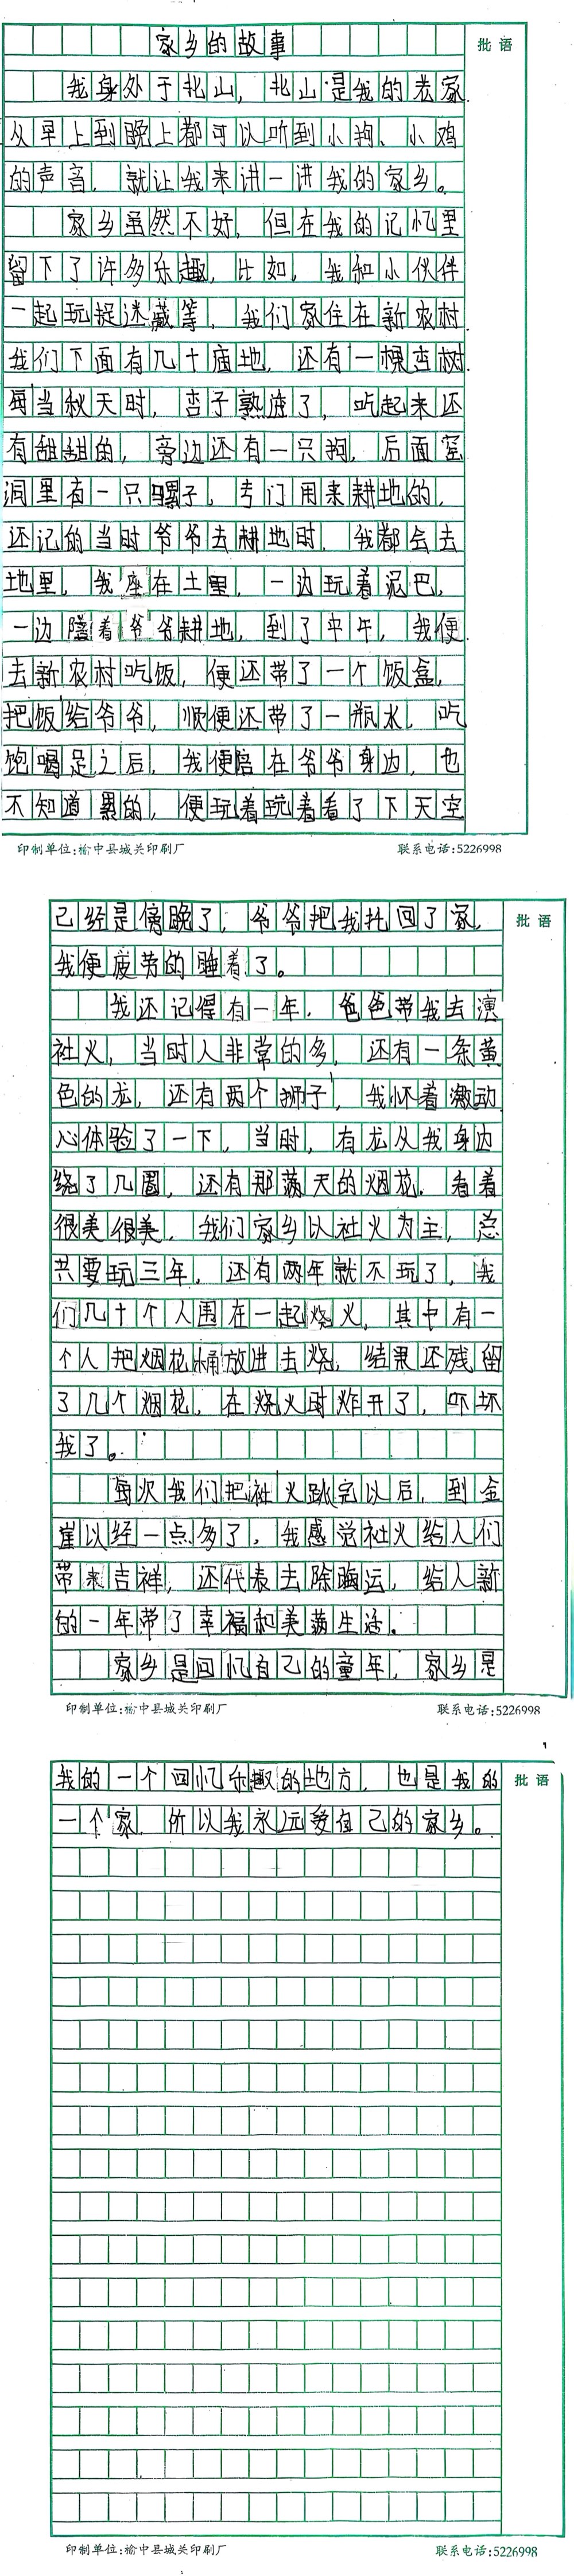 家乡的故事
批语
我身处于北山，北山是我的老家.
从早上到晚上都可以听到小狗、小鸡
的声音，就让我来讲一讲我的家乡。
家乡虽然不好，但在我的记忆里
留下了许多乐趣，比如，我和小伙伴
一起玩捉迷藏等，我们家住在新农村.
我们下面有几十亩地，还有一棵杏树.
每当秋天时，杏子熟透了，吃起来还
有甜甜的，旁边还有一只狗，后面窑
洞里有一只骡子，专门用来耕地的，
还记的当时爷爷去耕地时，我都会去
地里，我座在土里，一边玩着泥巴，
一边陪着爷爷耕地，到了中午，我便.
去新农村吃饭，便还带了一个饭盒，
把饭给爷爷，顺便还带了一瓶水，吃
饱喝足之后，我便陪在爷爷身边，也
不知道累的，便玩着玩着看了下天空
印制单位:榆中县城关印刷厂 联系电话:5226998
批语
已经是傍晚了，爷爷把我扥回了家，
我便疲劳的睡着了。
我还记得有一年，爸爸带我去演
社火，当时人非常的多，还有一条黄
色的龙，还有两个狮子，我怀着激动
心体验了一下，当时，有龙从我身边
绕了几圈，还有那满天的烟花，看着
很美很美，我们家乡以社火为主，总
共要玩三年，还有两年就不玩了，我
们几十个人围在一起烧火，其中有一
个人把烟花桶放进去烧，结果还残留
了几个烟花，在烧火时炸开了，吓坏
我了。
每次我们把社火跳完以后，到金
崖以经一点多了，我感觉社火给人们
带来吉祥，还代表去除晦运，给人新
的一年带了幸福和美满生活.
家乡是回忆自己的童年，家乡是
印制单位:榆中县城关印刷厂 联系电话:5226998
批语
我的一个回忆乐趣的地方，也是我的
一个家，所以我永远爱自己的家乡。
印制单位:榆中县城关印刷厂 联系电话:5226998